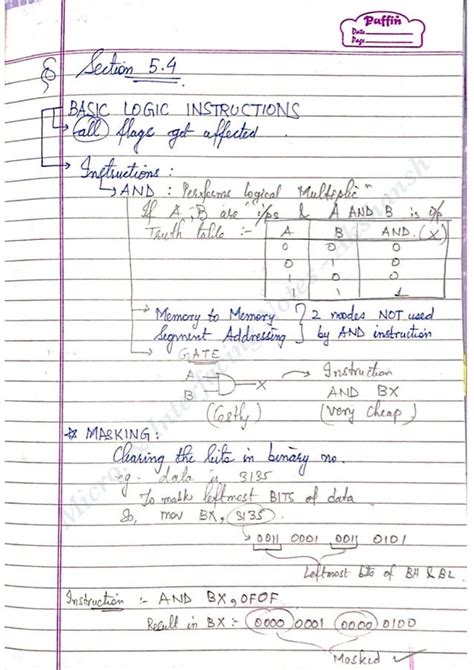 Puffin
Date
Page
Section 5.4
BASIC LOGIC INSTRUCTIONS
all flags get affected.
Instructions :
AND : Performs logical "Multiplic"
If A, B are i/ps & A AND B is i/p
Truth table :- A B AND (X)
0 0 0
0 1 0
1 0 0
1 1 1
Memory to Memory } 2 modes NOT used
Segment Addressing } by AND instruction
GATE
A
B X → Instruction
AND BX
(Costly) (very cheap)
* MASKING :
Clearing the bits in binary no.
eg. data is 3135
To mask leftmost BITS of data
So, mov BX, 3135
0011 0001 0011 0101
Leftmost bits of BH & BL
Instruction :- AND BX, 0F0F
Result in BX :- 0000 0001 0000 0100
Masked ✓